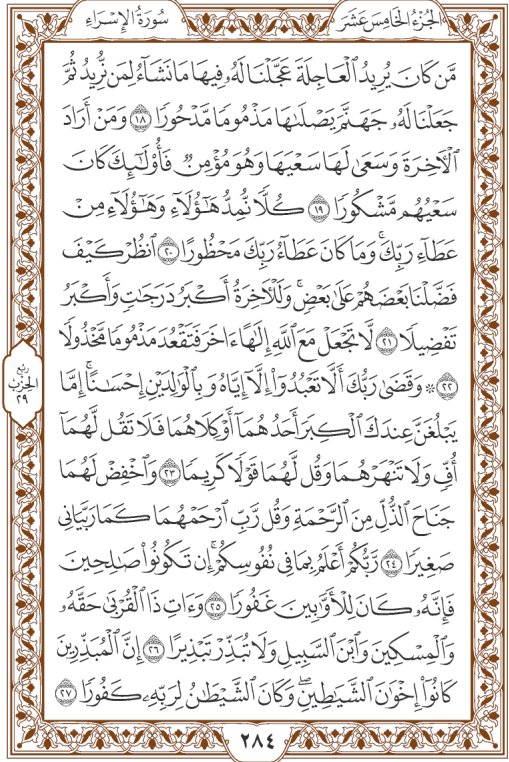 سُورَةُ الإِسْرَاءِ
الجُزْءُ الخَامِسَ عَشَرَ
مَّن كَانَ يُرِيدُ ٱلْعَاجِلَةَ عَجَّلْنَا لَهُۥ فِيهَا مَا نَشَآءُ لِمَن نُّرِيدُ ثُمَّ
جَعَلْنَا لَهُۥ جَهَنَّمَ يَصْلَىٰهَا مَذْمُومًا مَّدْحُورًا ١٨ وَمَنْ أَرَادَ
ٱلْأٓخِرَةَ وَسَعَىٰ لَهَا سَعْيَهَا وَهُوَ مُؤْمِنٌ فَأُو۟لَٰٓئِكَ كَانَ
سَعْيُهُم مَّشْكُورًا ١٩ كُلًّا نُّمِدُّ هَٰٓؤُلَآءِ وَهَٰٓؤُلَآءِ مِنْ
عَطَآءِ رَبِّكَ ۚ وَمَا كَانَ عَطَآءُ رَبِّكَ مَحْظُورًا ٢٠ ٱنظُرْ كَيْفَ
فَضَّلْنَا بَعْضَهُمْ عَلَىٰ بَعْضٍ ۚ وَلَلْأٓخِرَةُ أَكْبَرُ دَرَجَٰتٍ وَأَكْبَرُ
تَفْضِيلًا ٢١ لَّا تَجْعَلْ مَعَ ٱللَّهِ إِلَٰهًا ءَاخَرَ فَتَقْعُدَ مَذْمُومًا مَّخْذُولًا
٢٢ ۞ وَقَضَىٰ رَبُّكَ أَلَّا تَعْبُدُوٓا۟ إِلَّآ إِيَّاهُ وَبِٱلْوَٰلِدَيْنِ إِحْسَٰنًا ۚ إِمَّا
يَبْلُغَنَّ عِندَكَ ٱلْكِبَرَ أَحَدُهُمَآ أَوْ كِلَاهُمَا فَلَا تَقُل لَّهُمَآ
أُفٍّ وَلَا تَنْهَرْهُمَا وَقُل لَّهُمَا قَوْلًا كَرِيمًا ٢٣ وَٱخْفِضْ لَهُمَا
جَنَاحَ ٱلذُّلِّ مِنَ ٱلرَّحْمَةِ وَقُل رَّبِّ ٱرْحَمْهُمَا كَمَا رَبَّيَانِى
صَغِيرًا ٢٤ رَّبُّكُمْ أَعْلَمُ بِمَا فِى نُفُوسِكُمْ ۚ إِن تَكُونُوا۟ صَٰلِحِينَ
فَإِنَّهُۥ كَانَ لِلْأَوَّٰبِينَ غَفُورًا ٢٥ وَءَاتِ ذَا ٱلْقُرْبَىٰ حَقَّهُۥ
وَٱلْمِسْكِينَ وَٱبْنَ ٱلسَّبِيلِ وَلَا تُبَذِّرْ تَبْذِيرًا ٢٦ إِنَّ ٱلْمُبَذِّرِينَ
كَانُوٓا۟ إِخْوَٰنَ ٱلشَّيَٰطِينِ ۖ وَكَانَ ٱلشَّيْطَٰنُ لِرَبِّهِۦ كَفُورًا ٢٧
ربع
الحزب
٢٩
٢٨٤